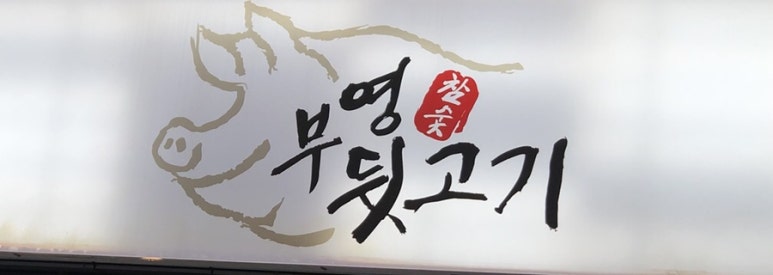 부영
참숯
뒷고기